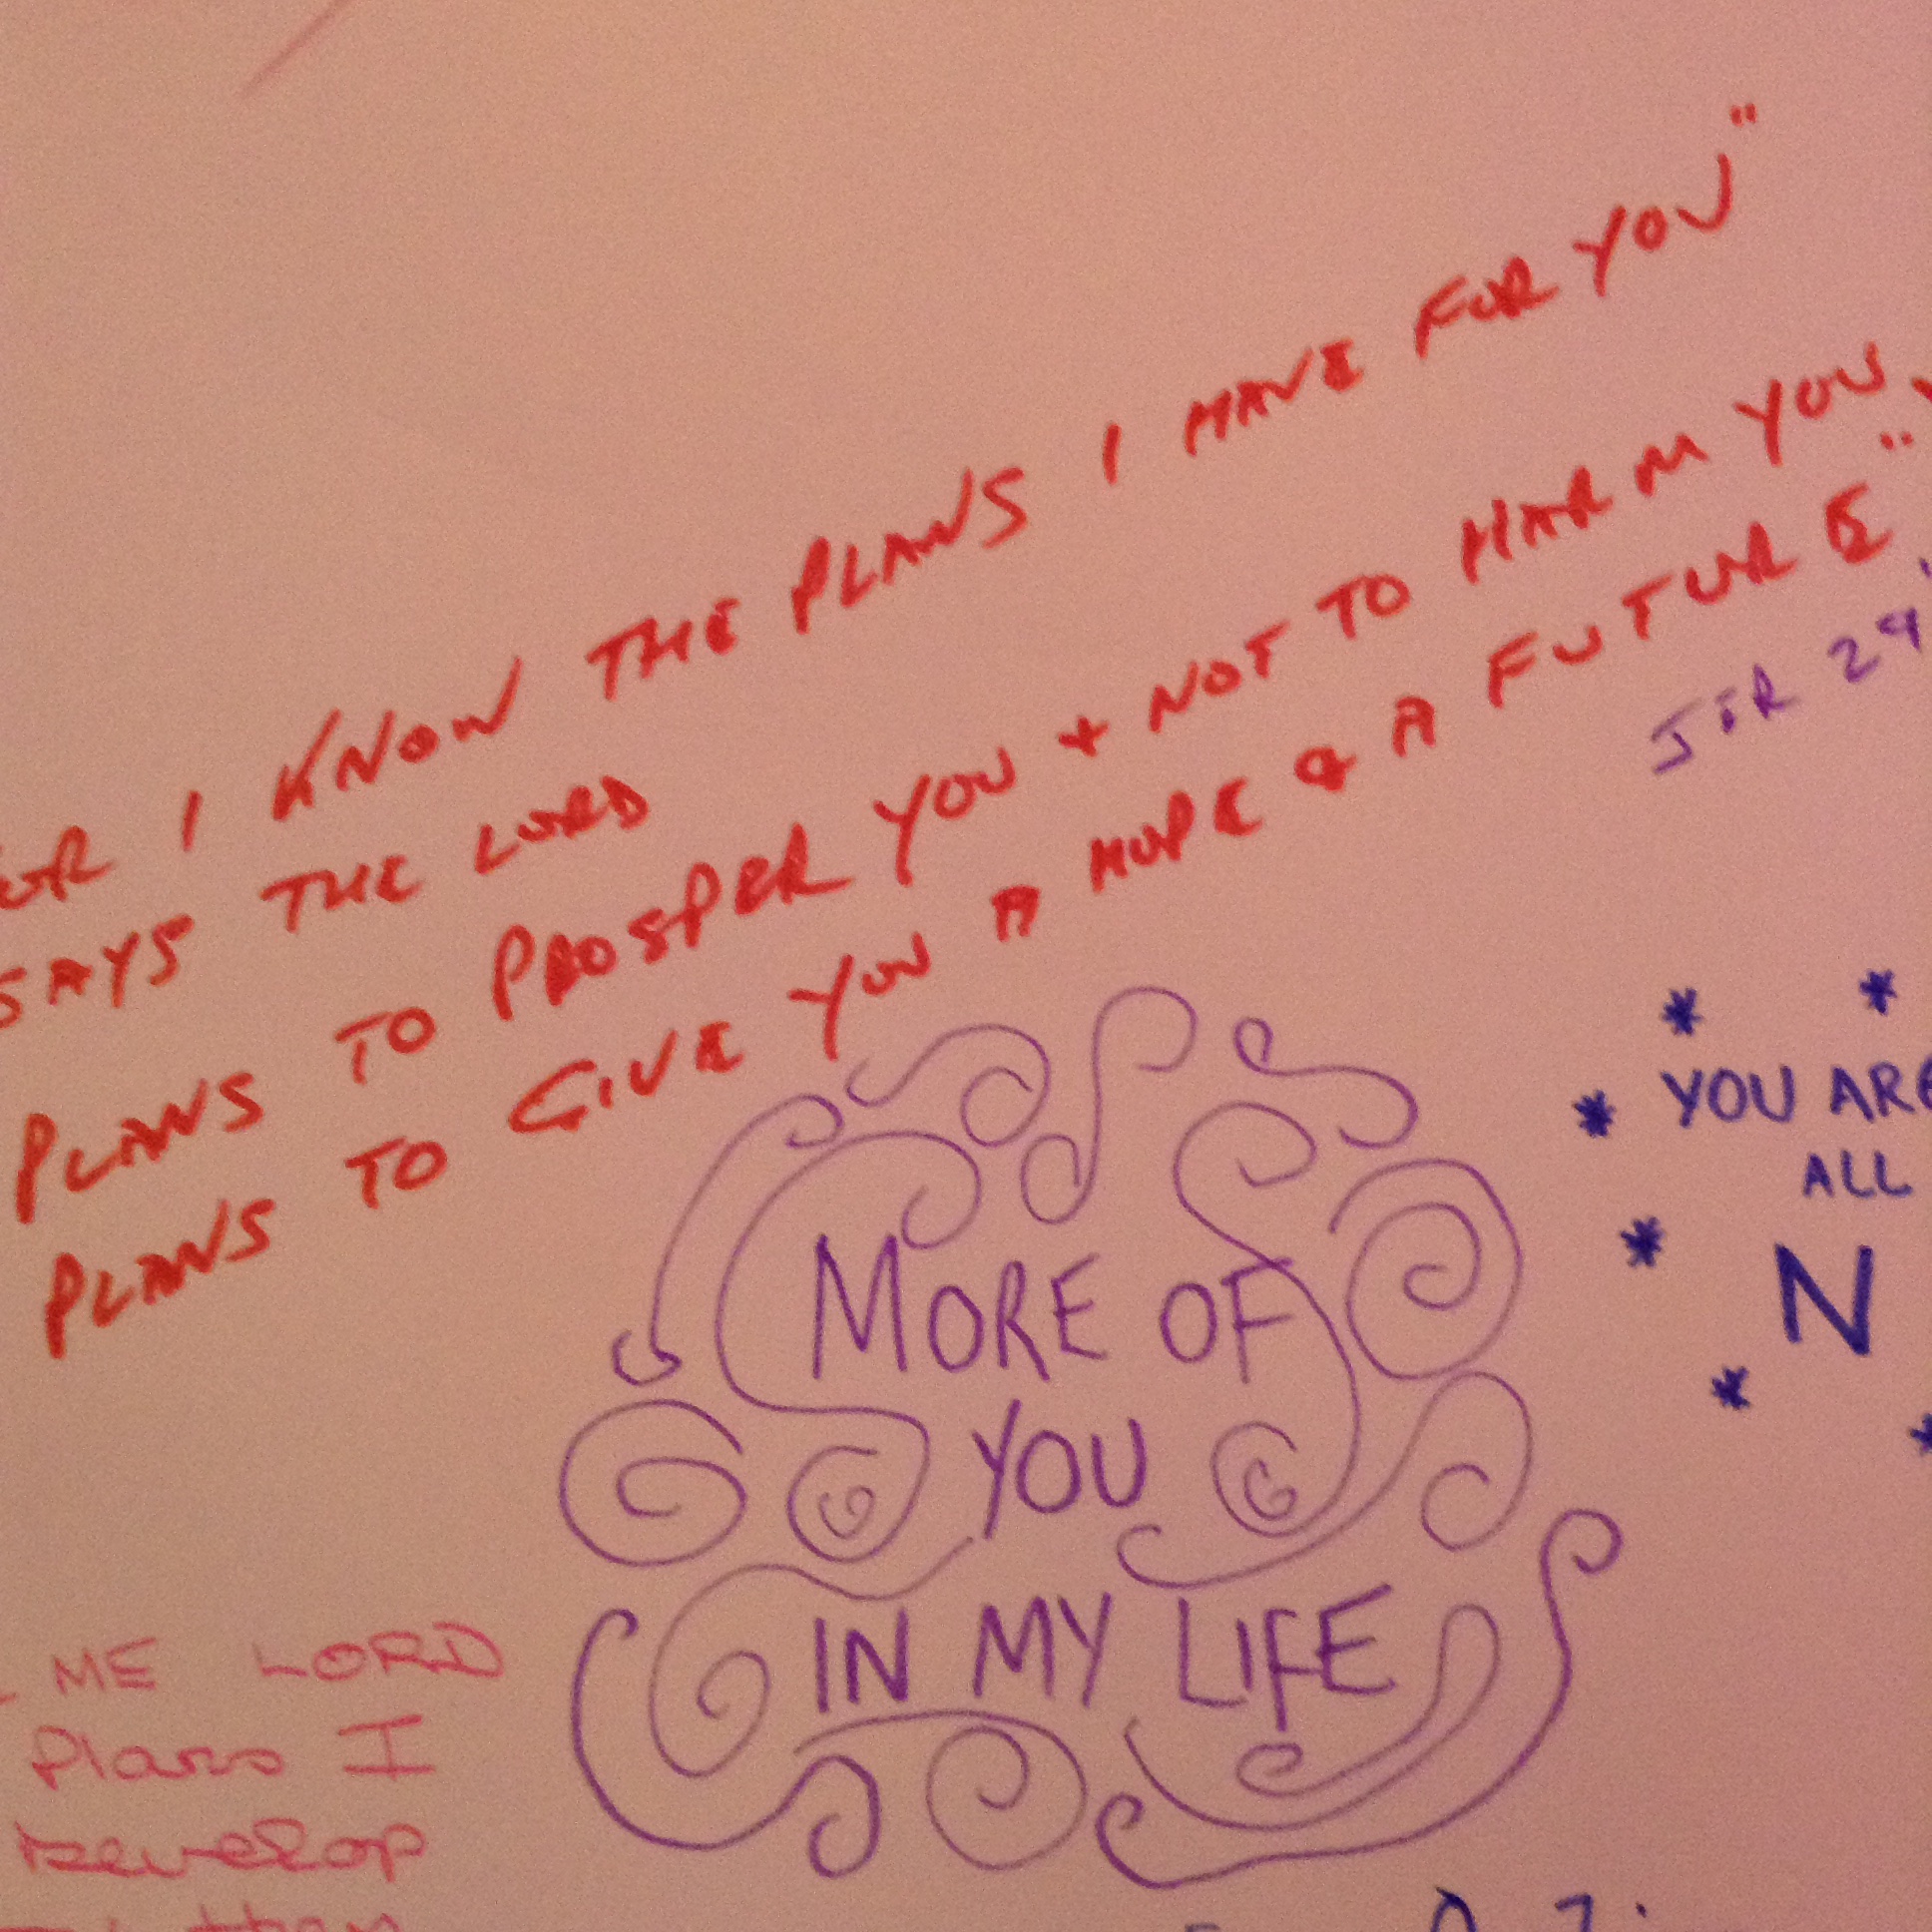 OR I KNOW THE PLANS I HAVE FOR YOU"
SAYS THE LORD
PLANS TO PROSPER YOU + NOT TO HARM YOU,
PLANS TO GIVE YOU A HOPE & A FUTURE"
JER 29
MORE OF
YOU
IN MY LIFE
* *
* YOU ARE
ALL
* N
*
*
ME LORD
Plans I
Develop
than